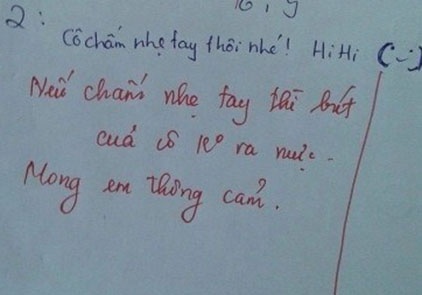 2:
Cô chấm nhẹ tay thôi nhé! HiHi (:-)
Nếu chấm nhẹ tay thì bút
cuả cô k° ra mực.
Mong em thông cảm.